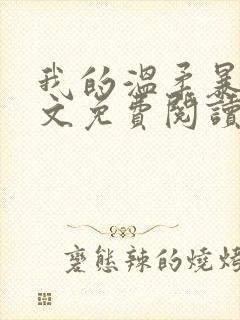 我的溫柔暴
文免費閱讀
變態辣的燒烤